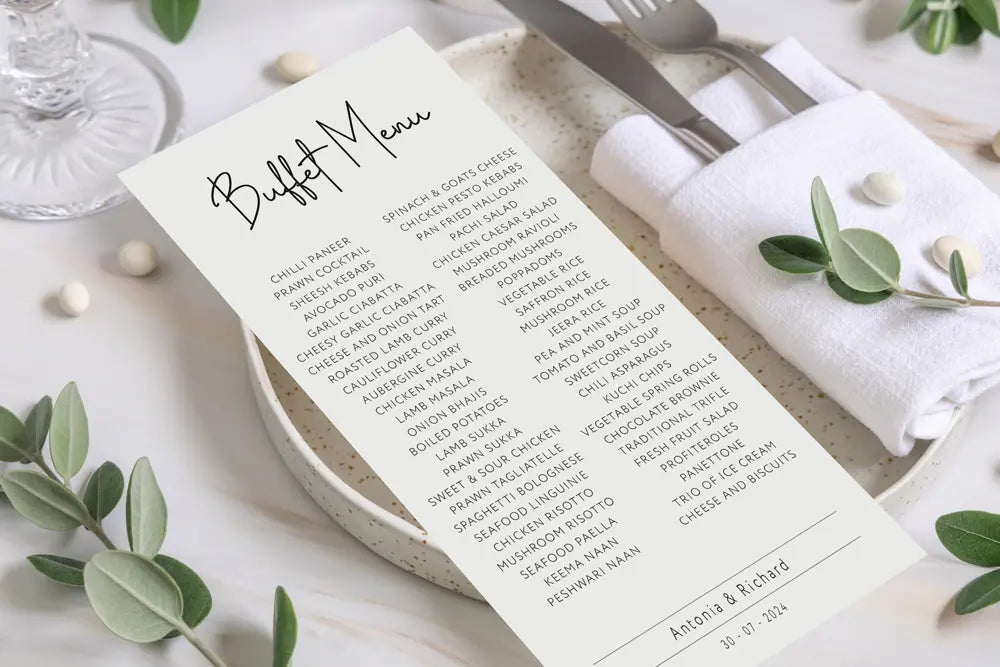 Buffet Menu
CHILLI PANEER
PRAWN COCKTAIL
SHEESH KEBABS
AVOCADO PURI
GARLIC CIABATTA
CHEESY GARLIC CIABATTA
CHEESE AND ONION TART
ROASTED LAMB CURRY
CAULIFLOWER CURRY
AUBERGINE CURRY
CHICKEN MASALA
LAMB MASALA
ONION BHAJIS
BOILED POTATOES
LAMB SUKKA
PRAWN SUKKA
SWEET & SOUR CHICKEN
PRAWN TAGLIATELLE
SPAGHETTI BOLOGNESE
SEAFOOD LINGUINIE
CHICKEN RISOTTO
MUSHROOM RISOTTO
SEAFOOD PAELLA
KEEMA NAAN
PESHWARI NAAN
SPINACH & GOATS CHEESE
CHICKEN PESTO KEBABS
PAN FRIED HALLOUMI
PACHI SALAD
CHICKEN CAESAR SALAD
MUSHROOM RAVIOLI
BREADED MUSHROOMS
POPPADOMS
VEGETABLE RICE
SAFFRON RICE
MUSHROOM RICE
JEERA RICE
PEA AND MINT SOUP
TOMATO AND BASIL SOUP
SWEETCORN SOUP
CHILI ASPARAGUS
KUCHI CHIPS
VEGETABLE SPRING ROLLS
CHOCOLATE BROWNIE
TRADITIONAL TRIFLE
FRESH FRUIT SALAD
PROFITEROLES
PANETTONE
TRIO OF ICE CREAM
CHEESE AND BISCUITS
Antonia & Richard
30 - 07 - 2024